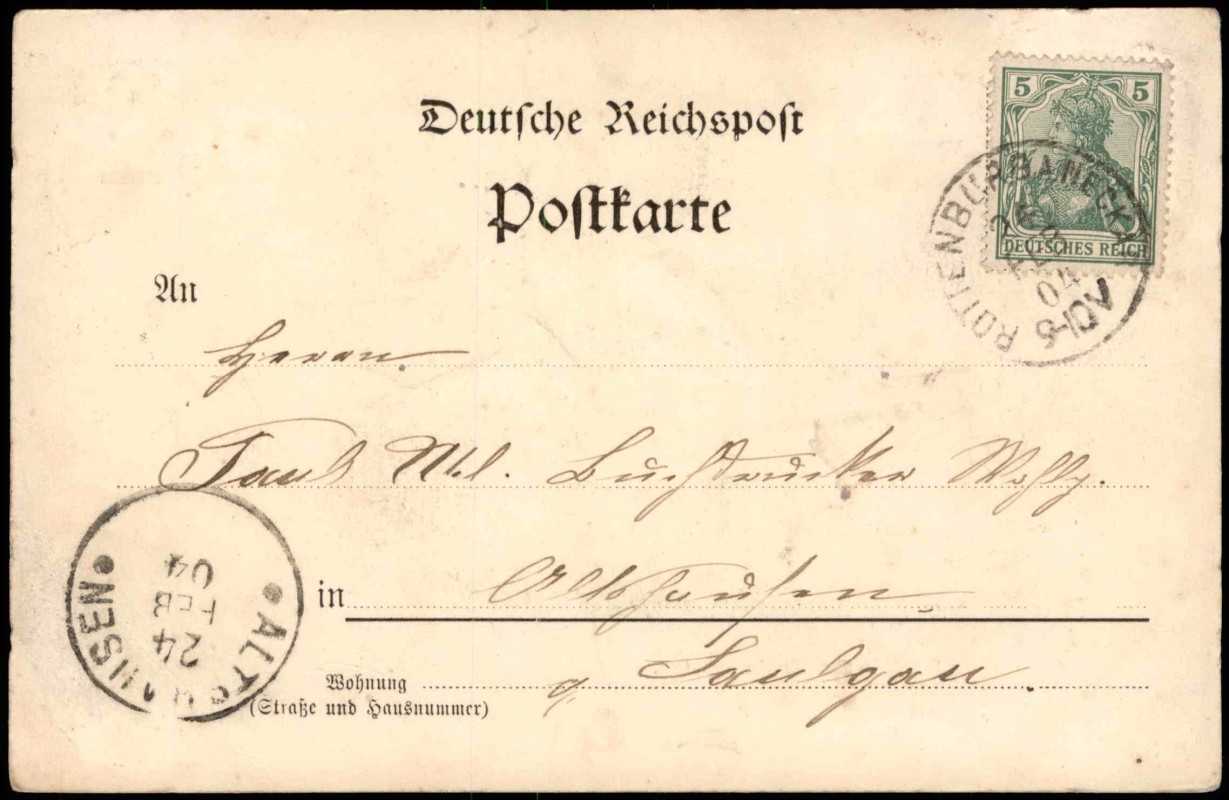 Deutsche Reichspost
Postkarte
5 5
DEUTSCHES REICH
ROTTENBURG A. NECKAR
FEB
04
8-10V
An
Herrn
Paul Buchdrucker
in Altshausen
Saulgau.
Wohnung
(Straße und Hausnummer)
ALTSHAUSEN
24
FEB
04